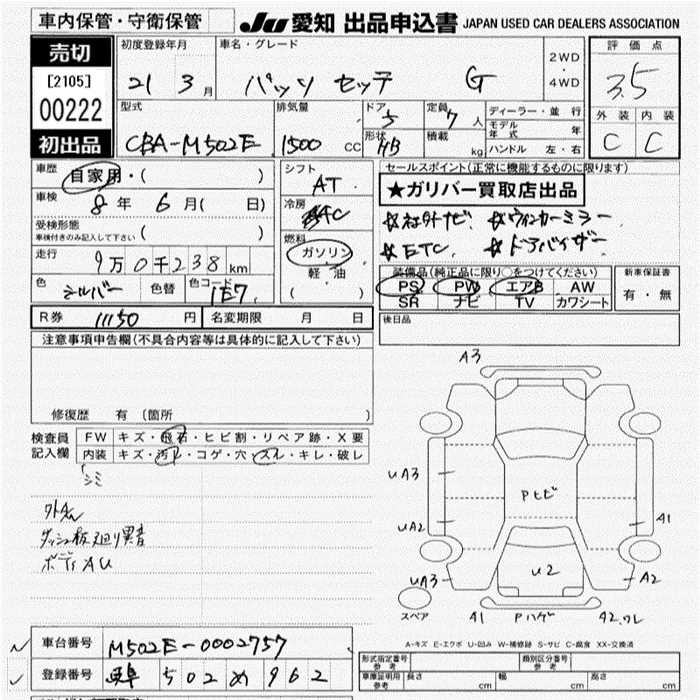 車内保管・守衛保管
JU 愛知 出品申込書 JAPAN USED CAR DEALERS ASSOCIATION
売切
[2105]
00222
初出品
初度登録年月
21 3月
車名・グレード
パッソ セッテ G
2WD
・
4WD
評価点
3.5
外装 内装
C C
型式
CBA-M502E
排気量
1500 CC
ドア
5
形状
HB
定員
7人
積載
kg
ディーラー・並行
モデル年式 年
ハンドル 左・右
車歴
自家用・( )
車検
8年 6月( 日)
受検形態
車検付きのみ記入して下さい ( )
走行
9万0千238km
色
シルバー
色替
色コード
1E7
シフト
AT
冷房
AC
燃料
ガソリン
・
軽・油
( )
セールスポイント(正常に機能するものに限ります)
★ガリバー買取店出品
☆社外ナビ ☆ウィンカーミラー
☆ETC ☆ドアバイザー
装備品(純正品に限り○をつけてください)
PS PW エアB AW
SR ナビ TV カワシート
新車保証書
有・無
R券 11150円
名変期限 月 日
後日品
注意事項申告欄(不具合内容等は具体的に記入して下さい)
修復歴 有 (箇所 )
検査員記入欄
FW キズ・飛石・ヒビ割・リペア跡・X要
内装 キズ・汚れ・コゲ・穴・スレ・キレ・破レ
シミ
ダッシュ板廻り異音
ボディAU
A3
UA3
UA2
UA3
Pヒビ
U2
A1
A2
スペア
A1
Pハゲ
A2.ワレ
A-キズ E-エクボ U-凹み W-補修跡 S-サビ C-腐食 XX-交換済
車台番号 M502E-0002757
登録番号 502 め 962
形式指定番号
参考
類別区分番号
参考
車庫証明用
参考
長さ cm 幅 cm 高さ cm